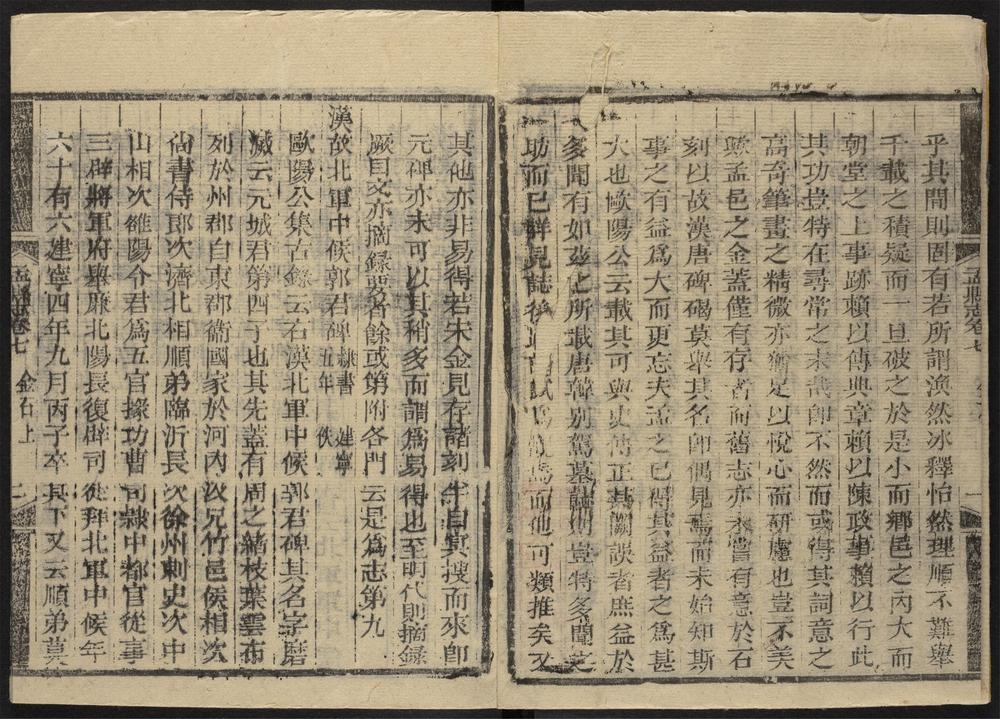 孟縣志卷七
乎其間則固有若所謂渙然冰釋怡然理順不難舉
千載之積疑而一旦破之於是小而鄉邑之內大而
朝堂之上事跡賴以傳典章賴以陳政事賴以行此
其功豈特在尋常之末哉即不然而或得其詞意之
高奇筆畫之精微亦可足以悅心而研慮也豈不美
歟孟邑之金蓋僅有存者而舊志亦未嘗有意於石
刻以故漢唐碑碣莫舉其名即偶見焉而未始知斯
事之有益爲大而更忘夫孟之已得其益者之爲甚
大也歐陽公云載其可與史傳正其闕誤者庶益於
多聞有如茲上所載唐韓別駕墓誌則豈特多聞之
一助而已詳見誌後 爲而他可類推矣又
其他亦非易得若宋金見存諸刻半自冥搜而來即
元碑亦未可以其稍多而謂爲易得也至明代則摘錄
厥目文亦摘錄要者餘或第附各門云是爲志第九
漢故北軍中候郭君碑 隸書 建寧五年 佚
歐陽公集古錄云右漢北軍中候郭君碑其名字磨
滅云元城君第四子也其先蓋有周之緒枝葉雲布
列於州郡自東郡衞國家於河內汲兄竹邑侯相次
尚書侍郎次濟北相順弟臨沂長次徐州刺史次中
山相次雒陽令君爲五官掾功曹司隸中都官從事
三辟將軍府舉廉北陽長復辟司徒拜北軍中候年
六十有六建寧四年九月丙子卒其下又云順弟莫
孟縣志卷七 金石上 二